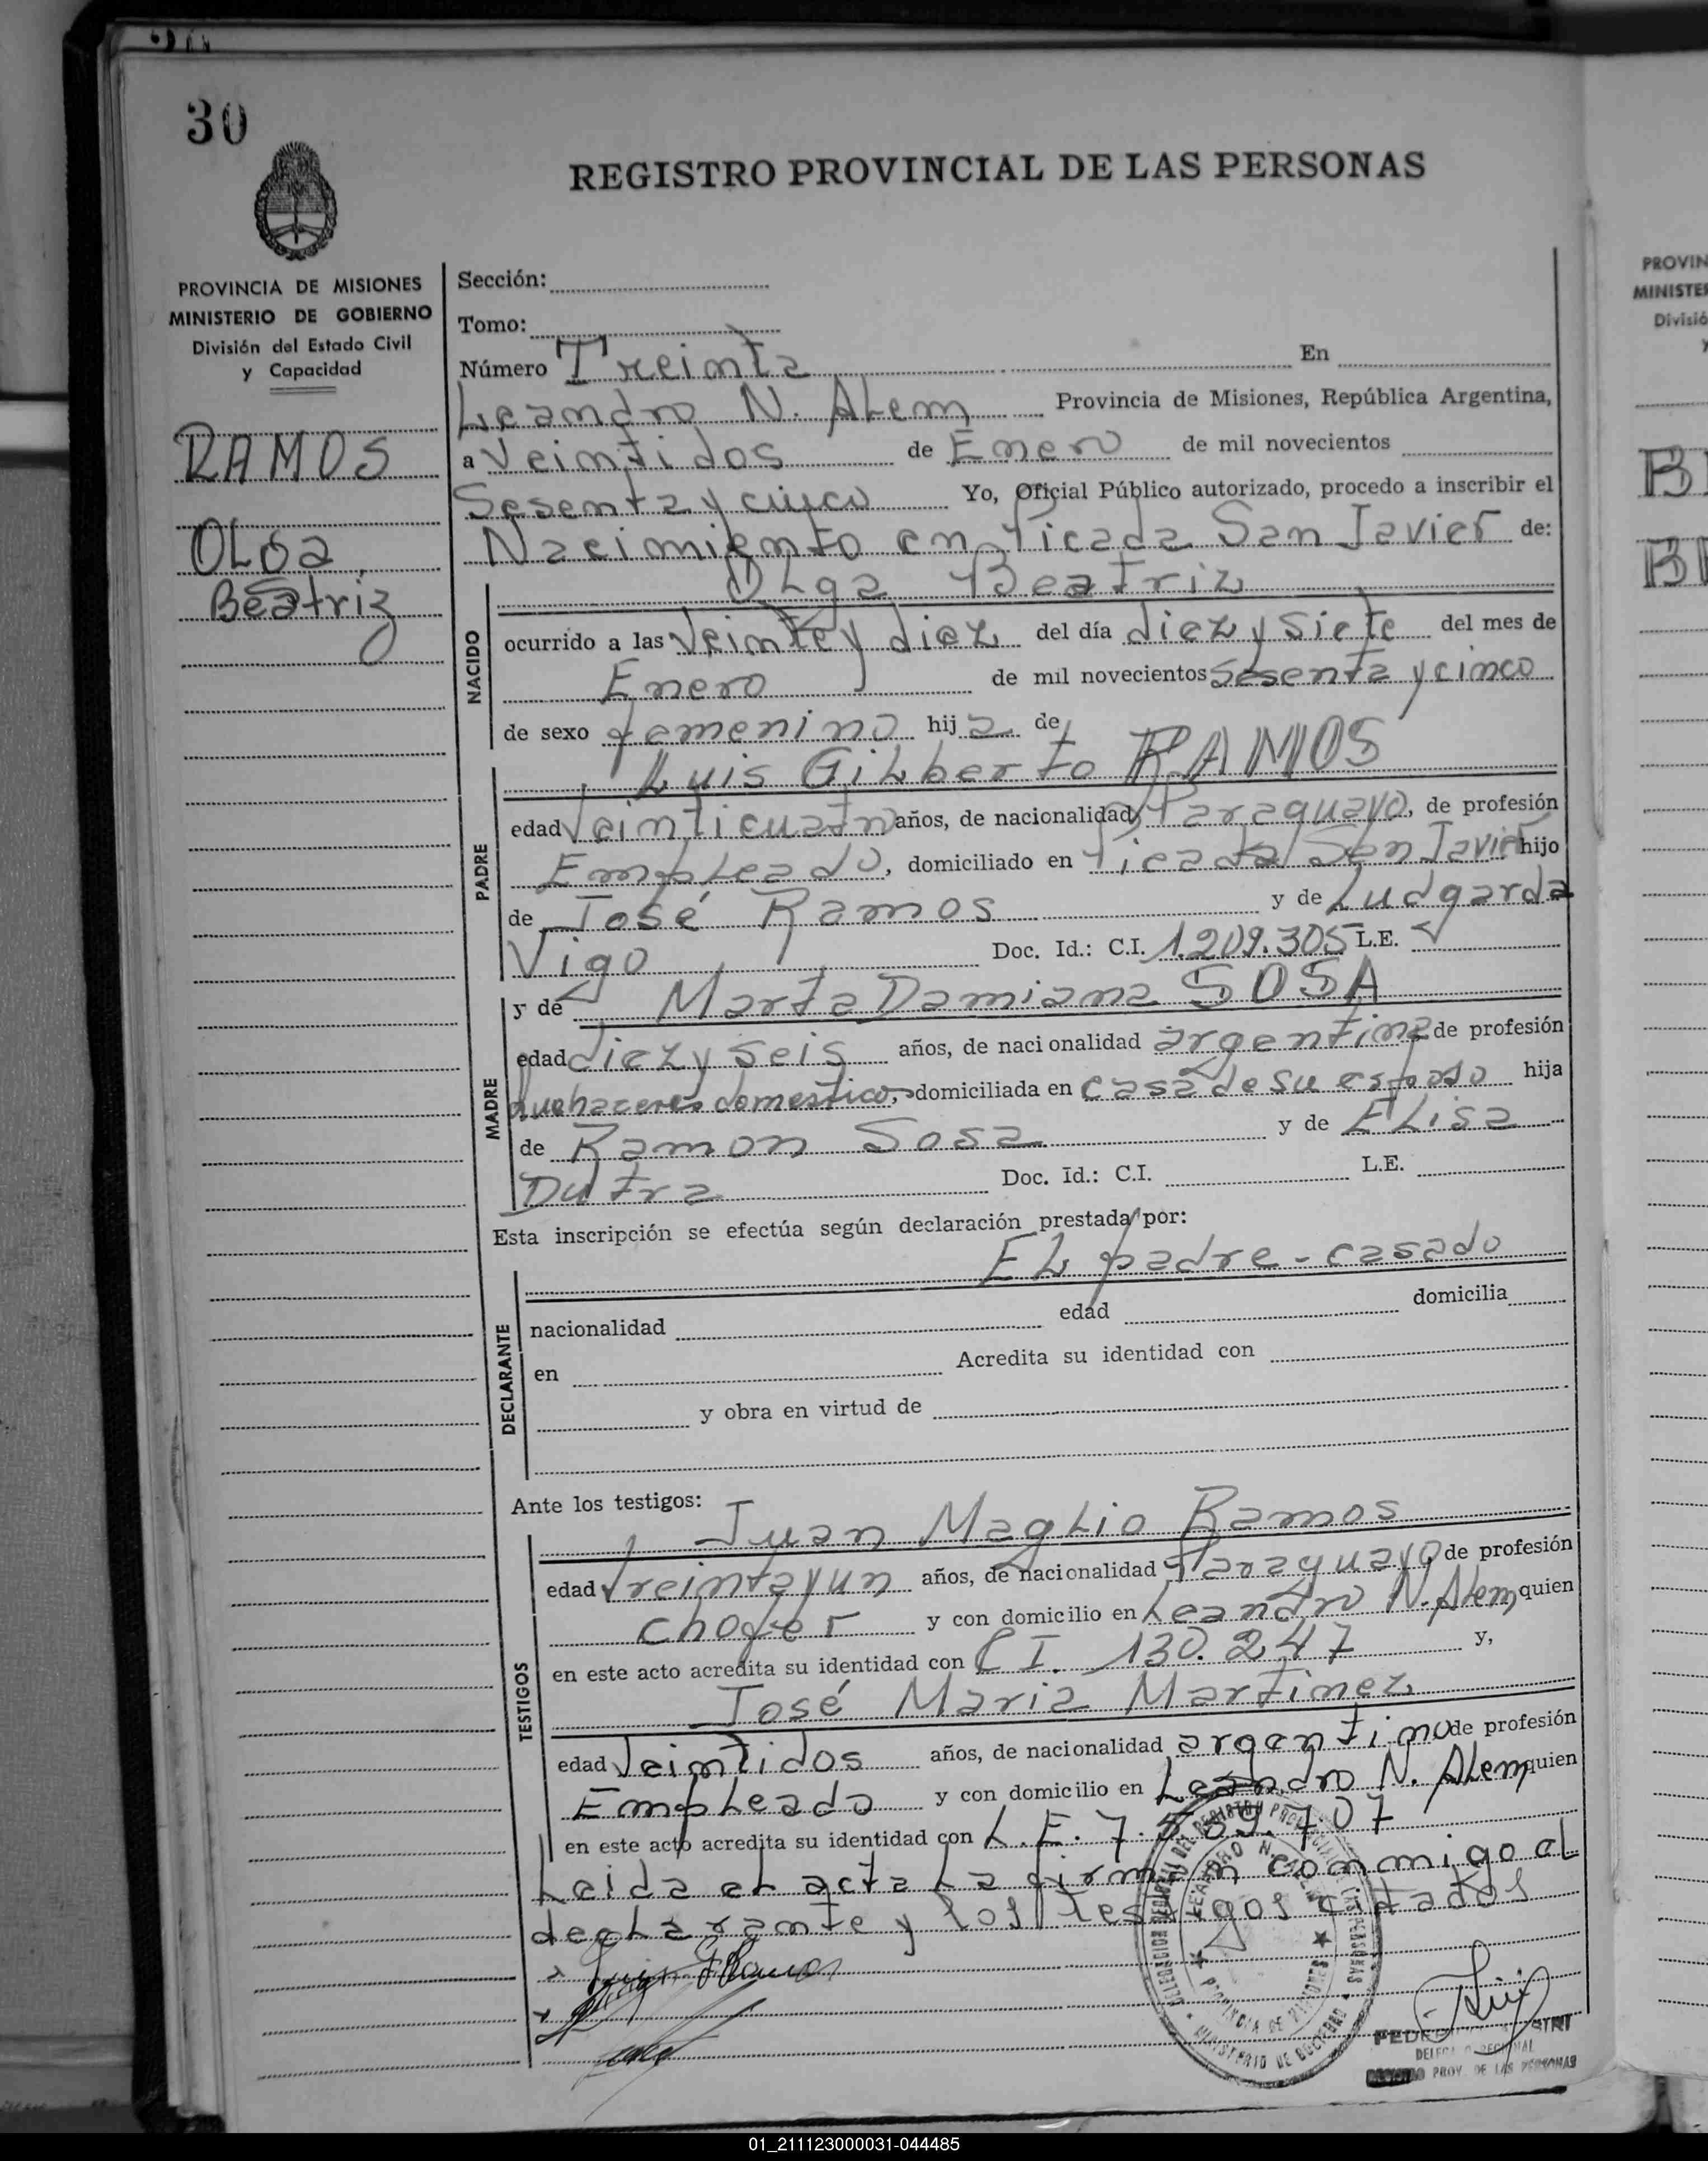 30
REGISTRO PROVINCIAL DE LAS PERSONAS
PROVINCIA DE MISIONES
MINISTERIO DE GOBIERNO
División del Estado Civil
y Capacidad
RAMOS
OLGa
Beatriz
Sección:
Tomo:
Número Treinta En
Leandro N. ALem Provincia de Misiones, República Argentina,
a Veintidos de Enero de mil novecientos
Sesenta y cinco Yo, Oficial Público autorizado, procedo a inscribir el
Nacimiento en Picada San Javier de:
OLga Beatriz
NACIDO
ocurrido a las Veinte y diez del día diez y siete del mes de
Enero de mil novecientos sesenta y cinco
de sexo femenino hija de
Luis GiLberto RAMOS
PADRE
edad Veinticuatro años, de nacionalidad Paraguayo, de profesión
EmpLeado, domiciliado en Picada San Javier hijo
de José Ramos y de Ludgarda
Vigo Doc. Id.: C.I. 1.209.305 L.E.
y de Marta Damiana SOSA
MADRE
edad diez y seis años, de nacionalidad argentina de profesión
quehaceres domestico, domiciliada en casa de su esposo hija
de Ramon Sosa y de ELisa
Dutra Doc. Id.: C.I. L.E.
Esta inscripción se efectúa según declaración prestada por:
EL padre - casado
DECLARANTE
nacionalidad edad domicilia
en Acredita su identidad con
y obra en virtud de
Ante los testigos:
Juan MagLio Ramos
TESTIGOS
edad treinta y un años, de nacionalidad Paraguayo de profesión
chofer y con domicilio en Leandro N. ALem quien
en este acto acredita su identidad con C I. 130.247 y,
José Maria Martinez
edad Veintidos años, de nacionalidad argentino de profesión
EmpLeado y con domicilio en Leandro N. ALem quien
en este acto acredita su identidad con L.E. 7. 707
Leida eL acta La firman conmigo el
decLarante y los testigos citados
LEANDRO N.
PROVINCIA DE MISIONES
MINISTERIO DE GOBIERNO
PROY. DE LAS PERSONAS
PROVIN
MINISTER
Divisió
01_211123000031-044485